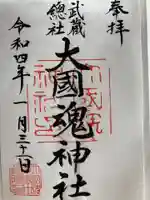 奉拝
武蔵
總社
大國魂神社
令和四年一月三十一日